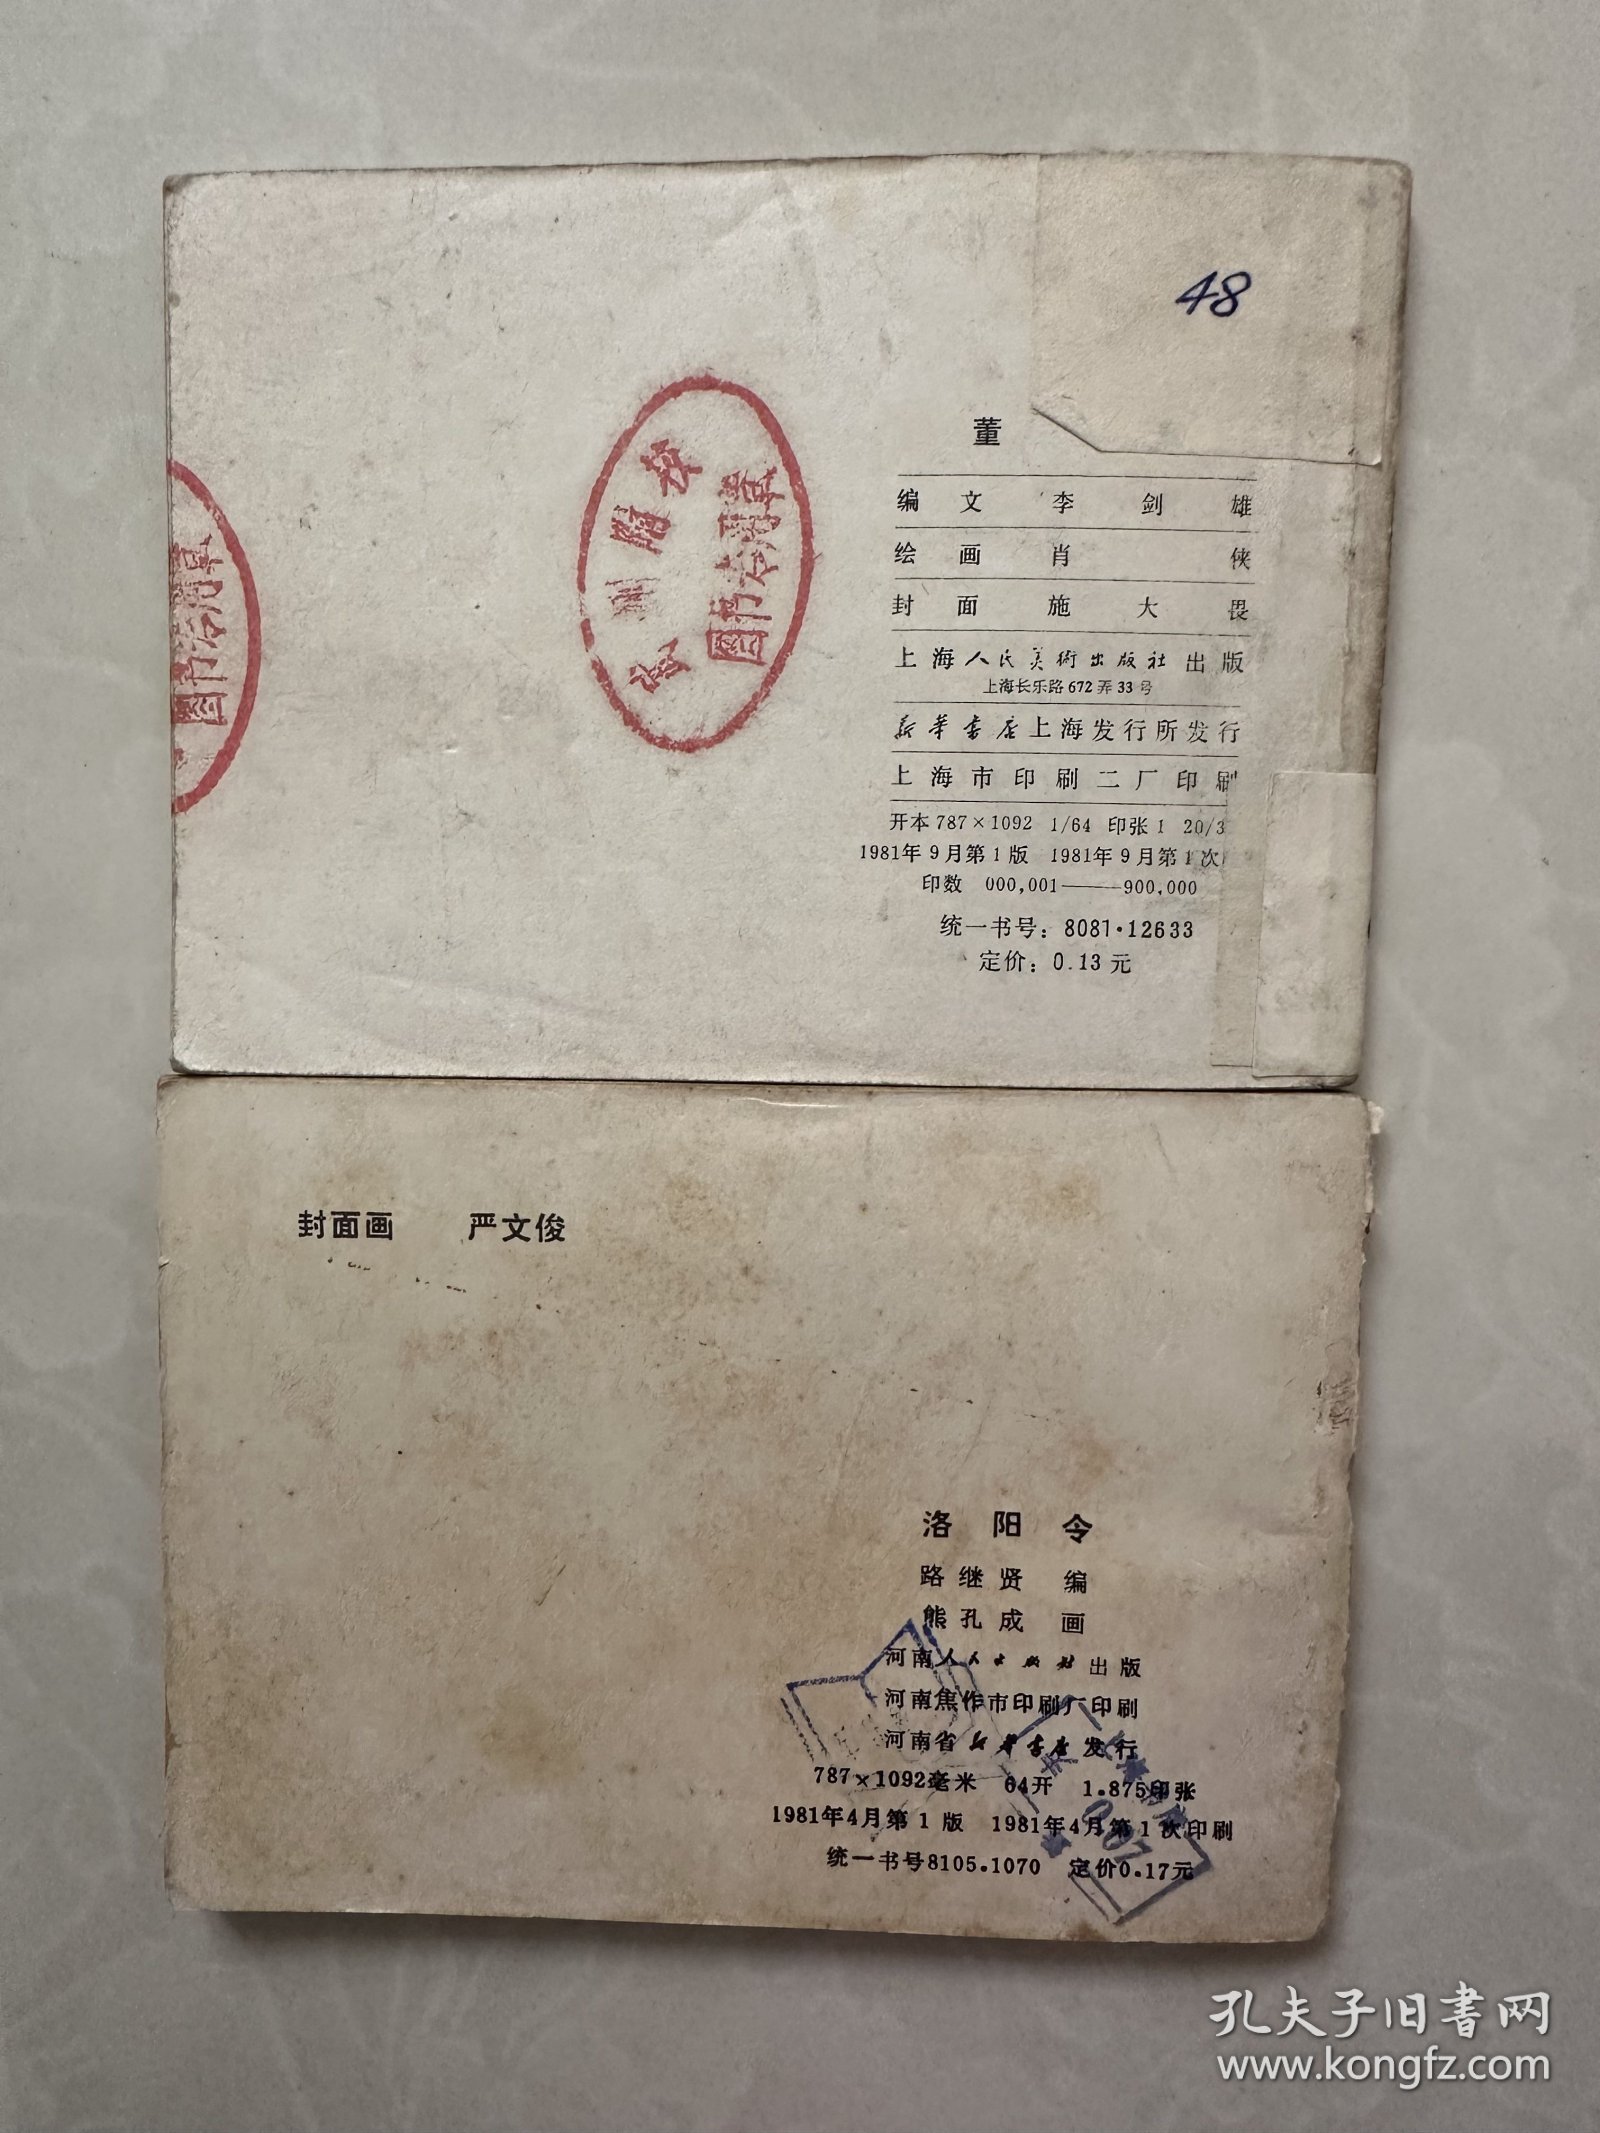 48
董
编文 李剑雄
绘画 肖 侠
封面 施大畏
上海人民美術出版社出版
上海长乐路672弄33号
新华书店上海发行所发行
上海市印刷二厂印刷
开本787×1092 1/64 印张1 20/3
1981年9月第1版 1981年9月第1次
印数 000,001——900,000
统一书号：8081·12633
定价：0.13元
图书
封面画 严文俊
洛阳令
路继贤 编
熊孔成 画
河南人民出版社出版
河南焦作市印刷厂印刷
河南省新华书店发行
787×1092毫米 64开 1.875印张
1981年4月第1版 1981年4月第1次印刷
统一书号8105.1070 定价0.17元
孔夫子旧书网
www.kongfz.com